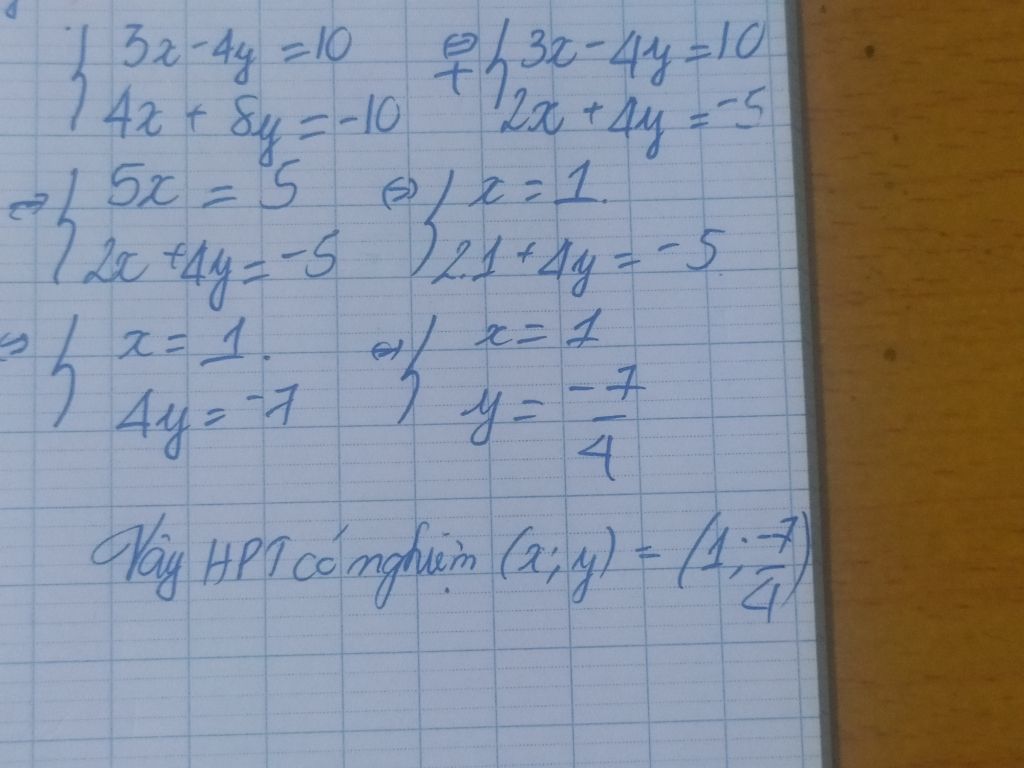 { 3x - 4y = 10 ⇔ { 3x - 4y = 10
4x + 8y = -10 + 2x + 4y = -5
⇔ { 5x = 5 ⇔ { x = 1.
2x + 4y = -5 2.1 + 4y = -5
⇔ { x = 1. ⇔ { x = 1
4y = -7 y = -7/4
Vậy HPT có nghiệm (x; y) = (1; -7/4)